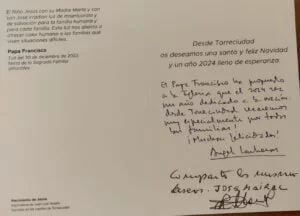 El Niño Jesús con su Madre María y con
san José irradian luz de misericordia y
de salvación para la familia humana y
para cada familia. Esta luz nos alienta a
ofrecer calor humano a las familias que
viven situaciones difíciles.
Papa Francisco
Tuit del 30 de diciembre de 2022,
fiesta de la Sagrada Familia
@Pontifex
Nacimiento de Jesús
Desde Torreciudad
os deseamos una santa y feliz Navidad
y un año 2024 lleno de esperanza.
El Papa Francisco ha propuesto
a la Iglesia que el 2024 sea
un año dedicado a la oración.
Desde Torreciudad rezaremos
muy especialmente por todas
las familias!
¡Muchas felicidades!
Angel
Comparto los mismos
deseos.